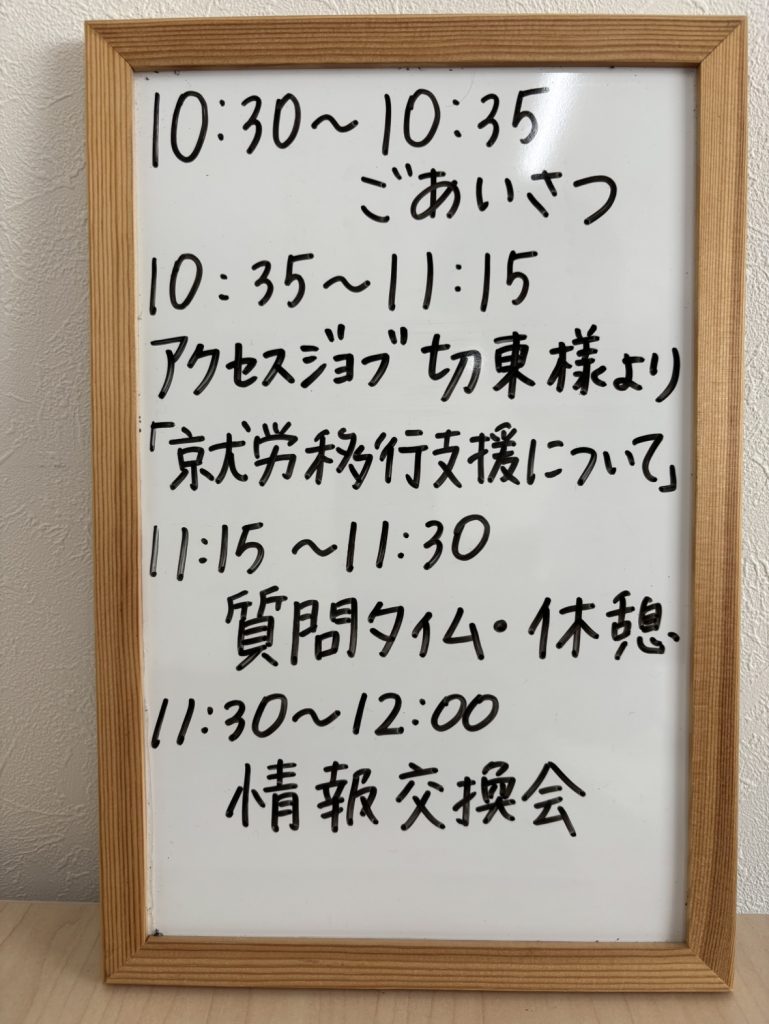 10:30～10:35
ごあいさつ
10:35～11:15
アクセスジョブ 切東様より
「就労移行支援について」
11:15～11:30
質問タイム・休憩
11:30～12:00
情報交換会